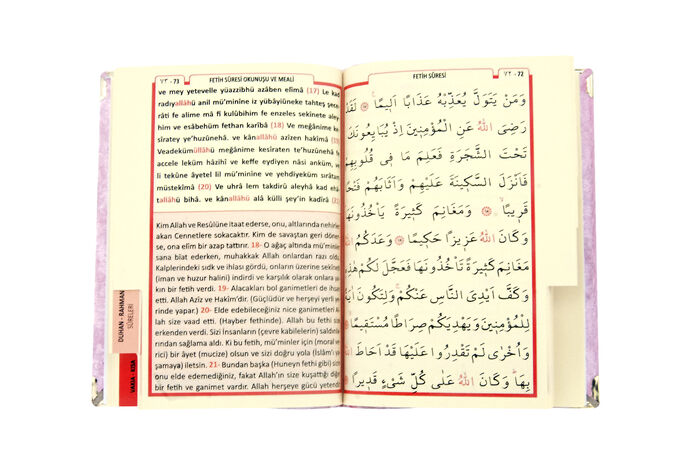 ٧٣ - 73
FETİH SÛRESİ OKUNUŞU VE MEALİ
ve mey yetevelle yüazzibhü azâben elîmâ (17) Le kad
radıyallâhü anil mü'minine iz yübâyiûneke tahteş şece-
râti fe alime mâ fî kulûbihim fe enzeles sekînete aley
him ve esâbehüm fethan karîbâ (18) Ve meğânime ke
sîratey ye'huzûnehâ. ve kânallâhü azîzen hakîmâ
Veadekümüllâhü meğânime kesîraten te'huzûnehâ fe
accele leküm hâzihî ve keffe eydiyen nâsi anküm, ve
li tekûne âyetel lil mü'minine ve yehdiyeküm sırâtan
müstekîmâ (20) Ve uhrâ lem takdirû aleyhâ kad ehâ-
tallâhü bihâ. ve kânallâhü alâ külli şey'in kadîrâ (21)
Kim Allah ve Resûlüne itaat ederse, onu, altlarında nehirler
akan Cennetlere sokacaktır. Kim de savaştan geri döner
se, ona elîm bir azap tattırır. 18- O ağaç altında mü'minler
sana biat ederken, muhakkak Allah onlardan razı oldu.
Kalplerindeki sıdk ve ihlası gördü, onların üzerine sekîneti
(iman ve huzur halini) indirdi ve karşılık olarak onlara ya
kın bir fetih verdi. 19- Alacakları bol ganimetleri de ihsan
etti. Allah Azîz ve Hakîm'dir. (Güçlüdür ve herşeyi yerli ye
rinde yapar.) 20- Elde edebileceğiniz nice ganimetleri Allah
size vaad etti. (Hayber fethinde). Allah bu fethi size
erkenden verdi. Sizi insanların (çevre kabilelerin) saldırıla
rından sağlama aldı. Ki bu fetih, mü'minler için (moral ve
rici) bir âyet (mucize) olsun ve sizi doğru yola (İslâm'ı ya-
şamaya) iletsin. 21- Bundan başka (Huneyn fethi gibi) sizin
onu elde edemediğiniz, fakat Allah'ın size kuşattığı diğer
bir fetih ve ganimet vardır. Allah herşeye gücü yetendir
DUHAN - RAHMAN
SÛRELERİ
VAKIA - KISA
FETİH SÛRESİ
٧٢ - 72
وَمَنْ يَتَوَلَّ يُعَذِّبْهُ عَذَابًا اَلِيمًا لَقَدْ
رَضِىَ اللّٰهُ عَنِ الْمُؤْمِنِينَ اِذْ يُبَايِعُونَكَ
تَحْتَ الشَّجَرَةِ فَعَلِمَ مَا فِى قُلُوبِهِمْ
فَاَنْزَلَ السَّكِينَةَ عَلَيْهِمْ وَاَثَابَهُمْ فَتْحًا
قَرِيبًا وَمَغَانِمَ كَثِيرَةً يَاْخُذُونَهَا
وَكَانَ اللّٰهُ عَزِيزًا حَكِيمًا وَعَدَكُمُ اللّٰهُ
مَغَانِمَ كَثِيرَةً تَاْخُذُونَهَا فَعَجَّلَ لَكُمْ هٰذِهِ
وَكَفَّ اَيْدِىَ النَّاسِ عَنْكُمْ وَلِتَكُونَ اٰيَةً
لِلْمُؤْمِنِينَ وَيَهْدِيَكُمْ صِرَاطًا مُسْتَقِيمًا
وَاُخْرٰى لَمْ تَقْدِرُوا عَلَيْهَا قَدْ اَحَاطَ اللّٰهُ
بِهَا وَكَانَ اللّٰهُ عَلٰى كُلِّ شَىْءٍ قَدِيرًا